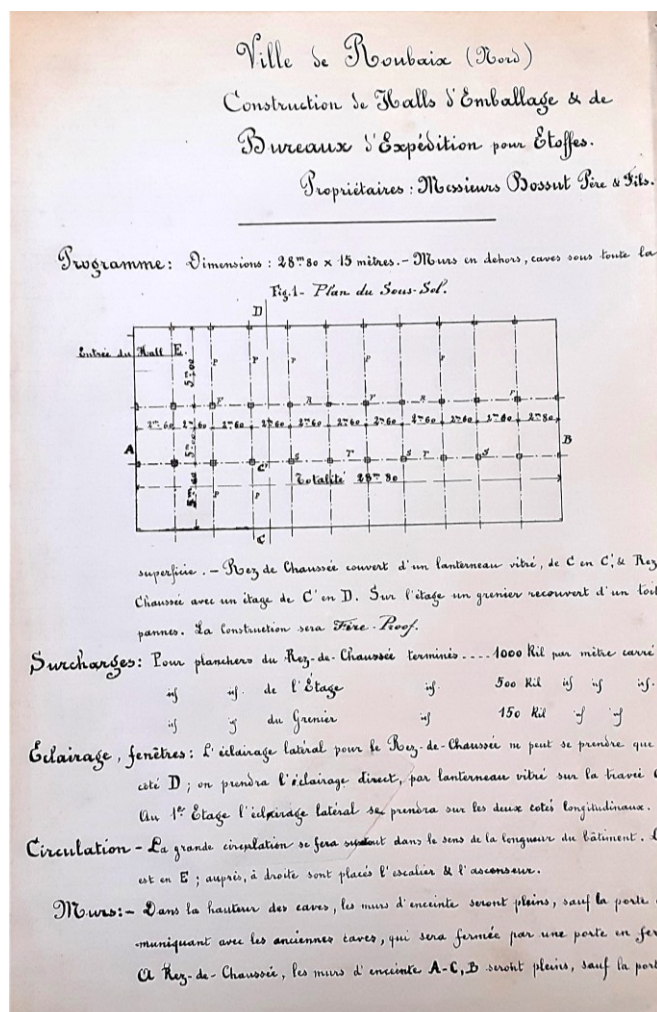 Ville de Roubaix (Nord)
Construction de Halls d'Emballage & de
Bureaux d'Expédition pour Étoffes.
Propriétaires : Messieurs Bossut Père & Fils.
Programme : Dimensions : 28m80 × 15 mètres. – Murs en dehors, caves sous toute la
Fig. 1 - Plan du Sous-Sol.
D
Entrée du Hall E.
5m00
P P P P
F A P A P
2m60 2m60 2m60 2m60 2m60 2m60 2m60 2m60 2m60 2m60 2m80
A 5m00 B
C' S P S P S
Totalité 28m80
5m00 P P
C
superficie. – Rez de Chaussée couvert d'un lanterneau vitré, de C en C', & Rez
Chaussée avec un étage de C' en D. Sur l'étage un grenier recouvert d'un toit
pannes. La Construction sera Fire-Proof.
Surcharges : Pour planchers du Rez-de-Chaussée terminés .... 1000 Kil par mètre carré
id id. de l'Étage id. 500 Kil id id id.
id id du Grenier id 150 Kil id id
Éclairage, fenêtres : L'éclairage latéral pour le Rez-de-Chaussée ne peut se prendre que
côté D ; on prendra l'éclairage direct, par lanterneau vitré sur la travée
Au 1er Étage l'éclairage latéral se prendra sur les deux cotés longitudinaux.
Circulation – La grande circulation se fera surtout dans le sens de la longueur du bâtiment.
est en E ; auprès, à droite sont placés l'escalier & l'ascenseur.
Murs : – Dans la hauteur des caves, les murs d'enceinte seront pleins, sauf la porte
-muniquant avec les anciennes caves, qui sera fermée par une porte en fer
A Rez-de-Chaussée, les murs d'enceinte A-C, B seront pleins, sauf la port